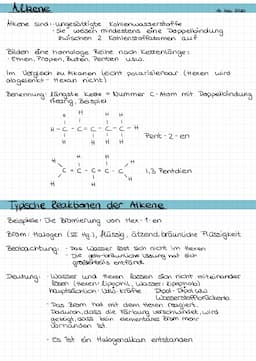 Alkene
Alkene sind: - ungesättigte Kohlenwasserstoffe
- Sie weisen mindestens eine Doppelbindung
zwischen 2 Kohlenstoffatomen auf
Bilden eine homologe Reihe nach Kettenlänge:
- Ethen, Propen, Buten, Penten usw.
Im Vergleich zu Alkanen leicht polarisierbar (Hexen wird
abgelenkt - Hexan nicht)
Benennung: längste Kette + Nummer C-Atom mit Doppelbindung
Beispiel
H H H
H - C - C - C - C - C - H
H H H H H
Pent - 2 - en
H H H
C - C - C - C - C
H H H
1,3 Pentdien
Typische Reaktionen der Alkene
Beispiele: Die Bromierung von Hex-1-en
Brom: Halogen (VII Hg), flüssig, ätzend, bräunliche Flüssigkeit
Beobachtung: - Das Wasser löst sich nicht im Hexen
- Die gelb-bräunliche Lösung hat sich
größtenteils entfärbt
Deutung: - Wasser und Hexen lassen sich nicht miteinander
lösen (Hexen: lipophil, Wasser: lipophob)
hauptsächlich: VdW-Kräfte Dipol-Dipol WW
Wasserstoffbrücken
- Das Brom hat mit dem Hexen reagiert.
Dadurch, dass die Färbung verschwindet, wird
gezeigt, dass kein elementares Brom mehr
vorhanden ist.
- Es ist ein Halogenalkan entstanden